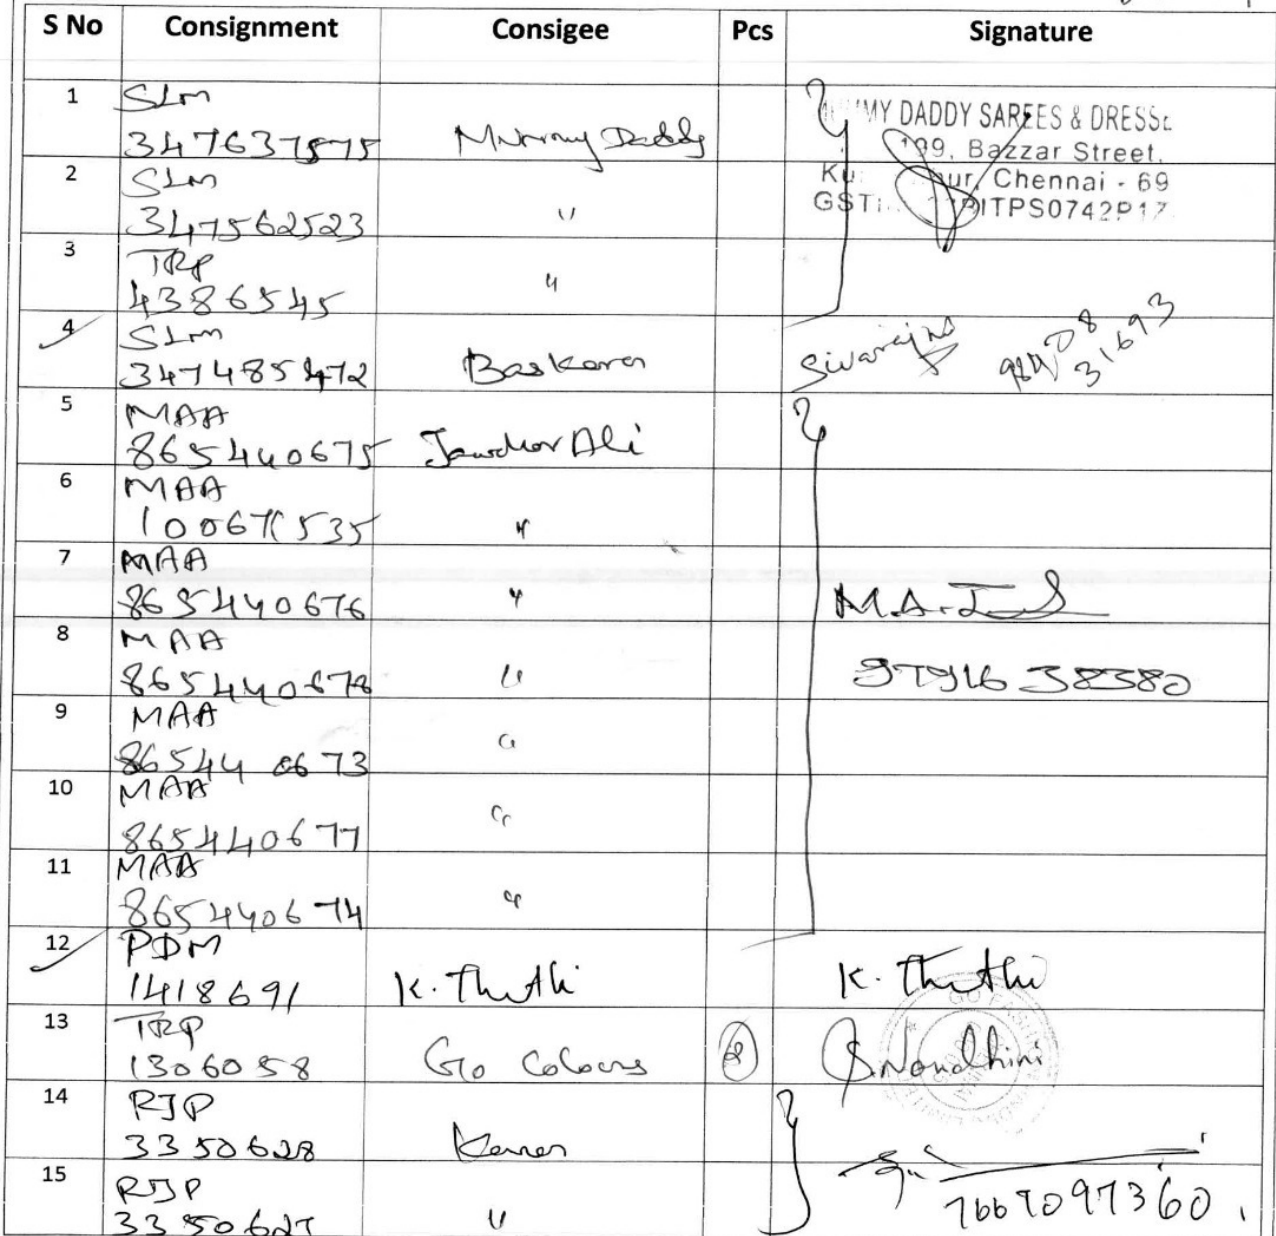 S No Consignment Consigee Pcs Signature
1 SLM
347637575 Mummy Daddy
MY DADDY SAREES & DRESS
199, Bazzar Street,
ur, Chennai - 69
2 SLM
347562523 "
3 TRP
4386545 "
4 SLM
347485472 Baskaran Sivaraj
31693
5 MAA
865440675 Jawahar Ali
6 MAA
100671535 "
7 MAA
865440676 "
8 MAA
865440678 "
38380
9 MAA
865440673 "
10 MAA
865440677 "
11 MAA
865440674 "
12 PDM
1418691 K. Thuthi K. Thuthi
13 TRP
1306058 Go Colours 2 S. Nandhini
14 RJP
3350628
15 RJP
3350627 "